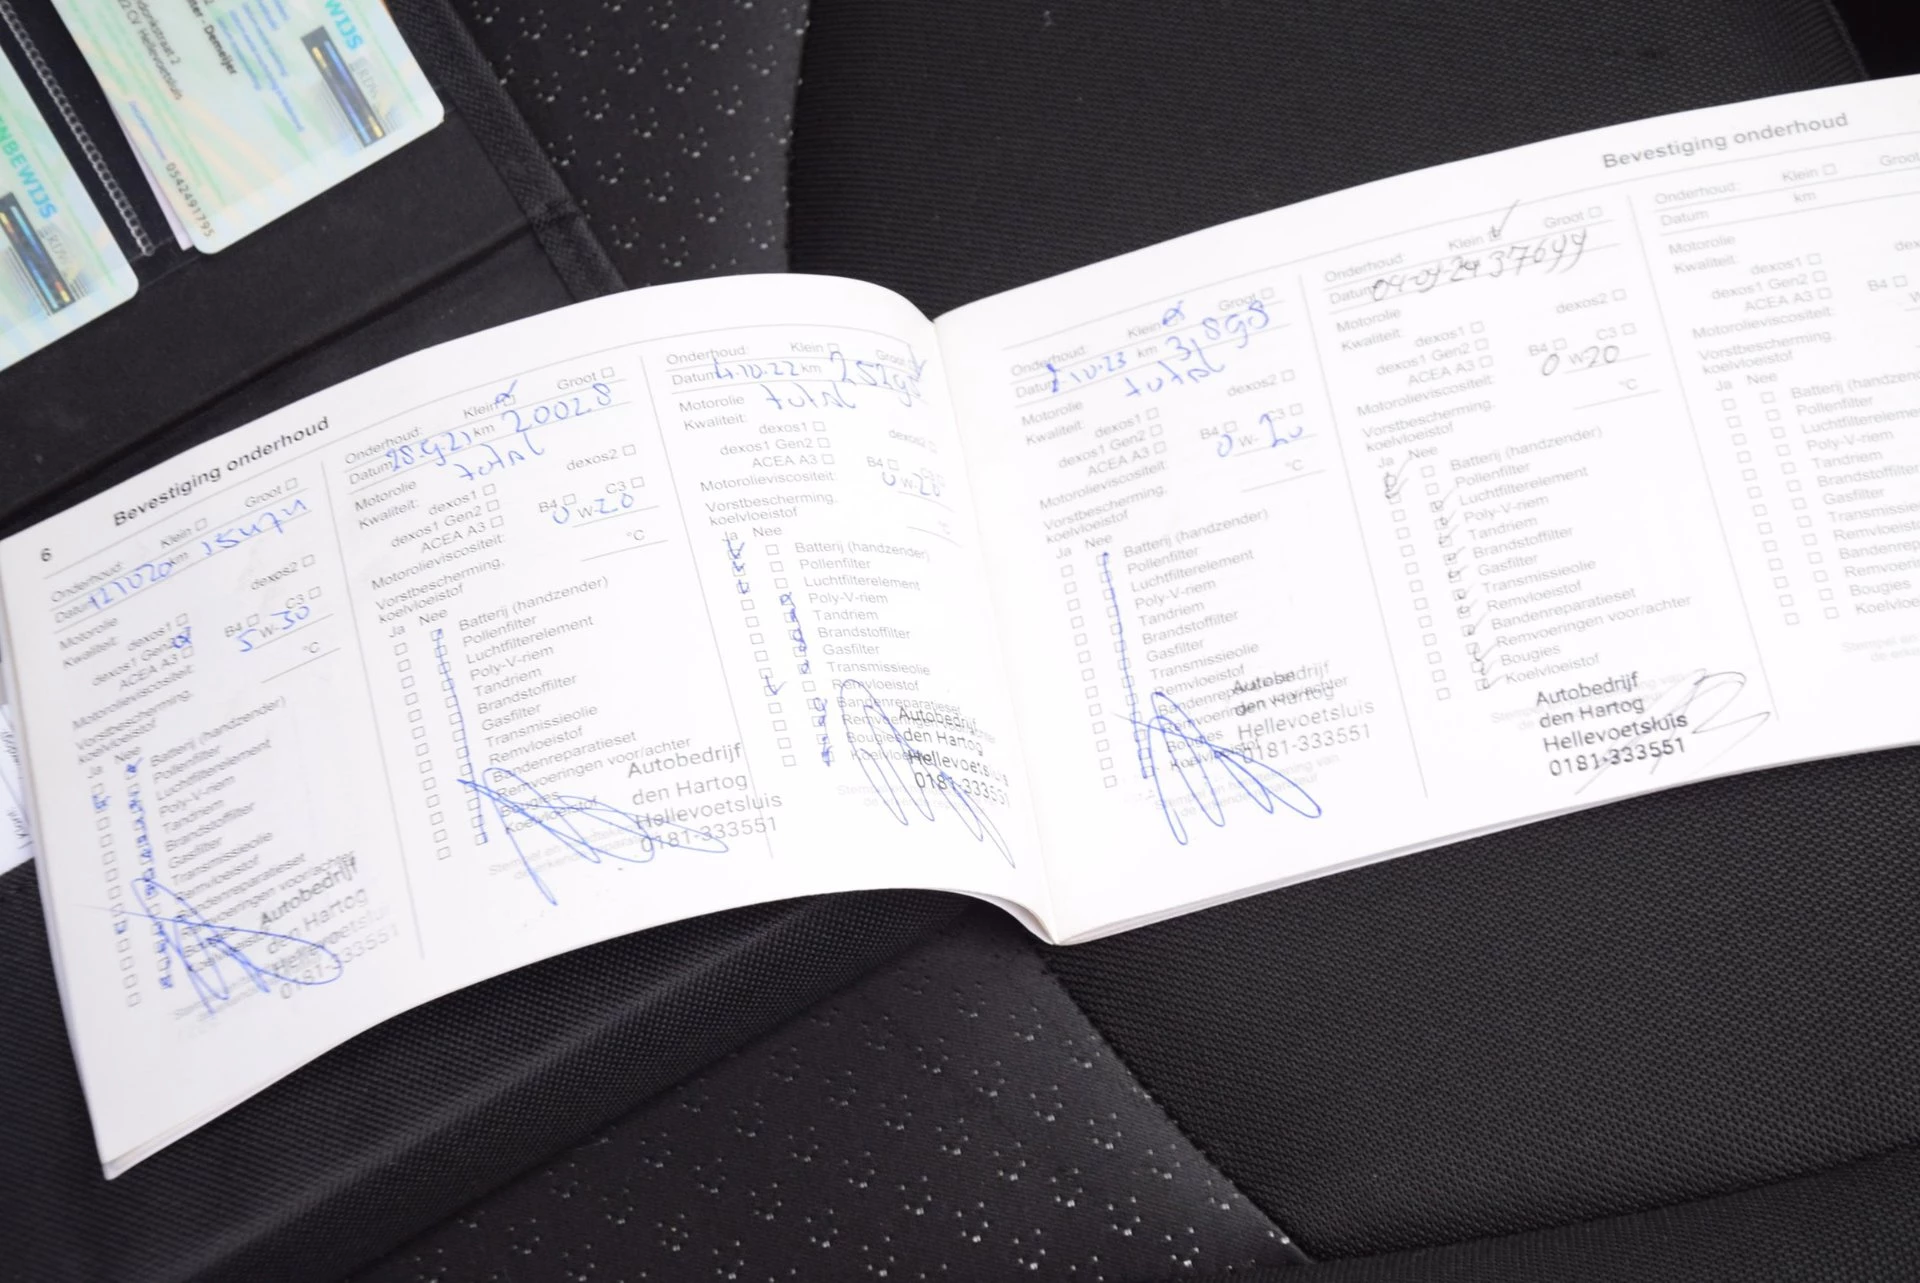 WIJS
NBEWIJS
- Demeijer
2 CV Hellevoetsluis
0542491795
6
Bevestiging onderhoud
Onderhoud: Klein Groot
Datum 121020 km
Motorolie
Kwaliteit: dexos1 dexos2
dexos1 Gen2
ACEA A3 B4 C3
Motorolieviscositeit: 5 W-30
Vorstbescherming,
koelvloeistof °C
Ja Nee
Batterij (handzender)
Pollenfilter
Luchtfilterelement
Poly-V-riem
Tandriem
Brandstoffilter
Gasfilter
Transmissieolie
Remvloeistof
Bandenreparatieset
Remvoeringen voor/achter
Autobedrijf
den Hartog
Hellevoetsluis
0181-333551
Onderhoud: Klein Groot
Datum 28.9.21 km 20028
Motorolie total
Kwaliteit: dexos1 dexos2
dexos1 Gen2
ACEA A3 B4 C3
Motorolieviscositeit: 0 W-20
Vorstbescherming,
koelvloeistof °C
Ja Nee
Batterij (handzender)
Pollenfilter
Luchtfilterelement
Poly-V-riem
Tandriem
Brandstoffilter
Gasfilter
Transmissieolie
Remvloeistof
Bandenreparatieset
Remvoeringen voor/achter
Bougies
Koelvloeistof
Autobedrijf
den Hartog
Hellevoetsluis
0181-333551
Onderhoud: Klein Groot
Datum 4.10.22 km
Motorolie total
Kwaliteit:
dexos1 dexos2
dexos1 Gen2
ACEA A3 B4 C3
Motorolieviscositeit: 0 W-20
Vorstbescherming,
koelvloeistof °C
Ja Nee
Batterij (handzender)
Pollenfilter
Luchtfilterelement
Poly-V-riem
Tandriem
Brandstoffilter
Gasfilter
Transmissieolie
Remvloeistof
Bandenreparatieset
Remvoeringen
Bougies
Koelvloeistof
Autobedrijf
den Hartog
Hellevoetsluis
0181-333551
Bevestiging onderhoud
Onderhoud: Klein Groot
Datum 10.23 km 31898
Motorolie total
Kwaliteit:
dexos1 dexos2
dexos1 Gen2
ACEA A3 B4 C3
Motorolieviscositeit: 0 W-20
Vorstbescherming,
koelvloeistof °C
Ja Nee
Batterij (handzender)
Pollenfilter
Luchtfilterelement
Poly-V-riem
Tandriem
Brandstoffilter
Gasfilter
Transmissieolie
Remvloeistof
Bandenreparatieset
Remvoeringen voor/achter
Bougies
Koelvloeistof
Autobedrijf
den Hartog
Hellevoetsluis
0181-333551
Onderhoud: Klein Groot
Datum 37699
Motorolie
Kwaliteit:
dexos1 dexos2
dexos1 Gen2
ACEA A3 B4 C3
Motorolieviscositeit: 0 W-20
Vorstbescherming,
koelvloeistof °C
Ja Nee
Batterij (handzender)
Pollenfilter
Luchtfilterelement
Poly-V-riem
Tandriem
Brandstoffilter
Gasfilter
Transmissieolie
Remvloeistof
Bandenreparatieset
Remvoeringen voor/achter
Bougies
Koelvloeistof
Autobedrijf
den Hartog
Hellevoetsluis
0181-333551
Onderhoud: Klein Groot
Datum km
Motorolie
Kwaliteit:
dexos1
dexos1 Gen2
ACEA A3 B4
Motorolieviscositeit:
Vorstbescherming,
koelvloeistof
Ja Nee
Batterij (handzend
Pollenfilter
Luchtfilterelemen
Poly-V-riem
Tandriem
Brandstoffilter
Gasfilter
Transmissie
Remvloeistof
Bandenrep
Remvoerin
Bougies
Koelvloei